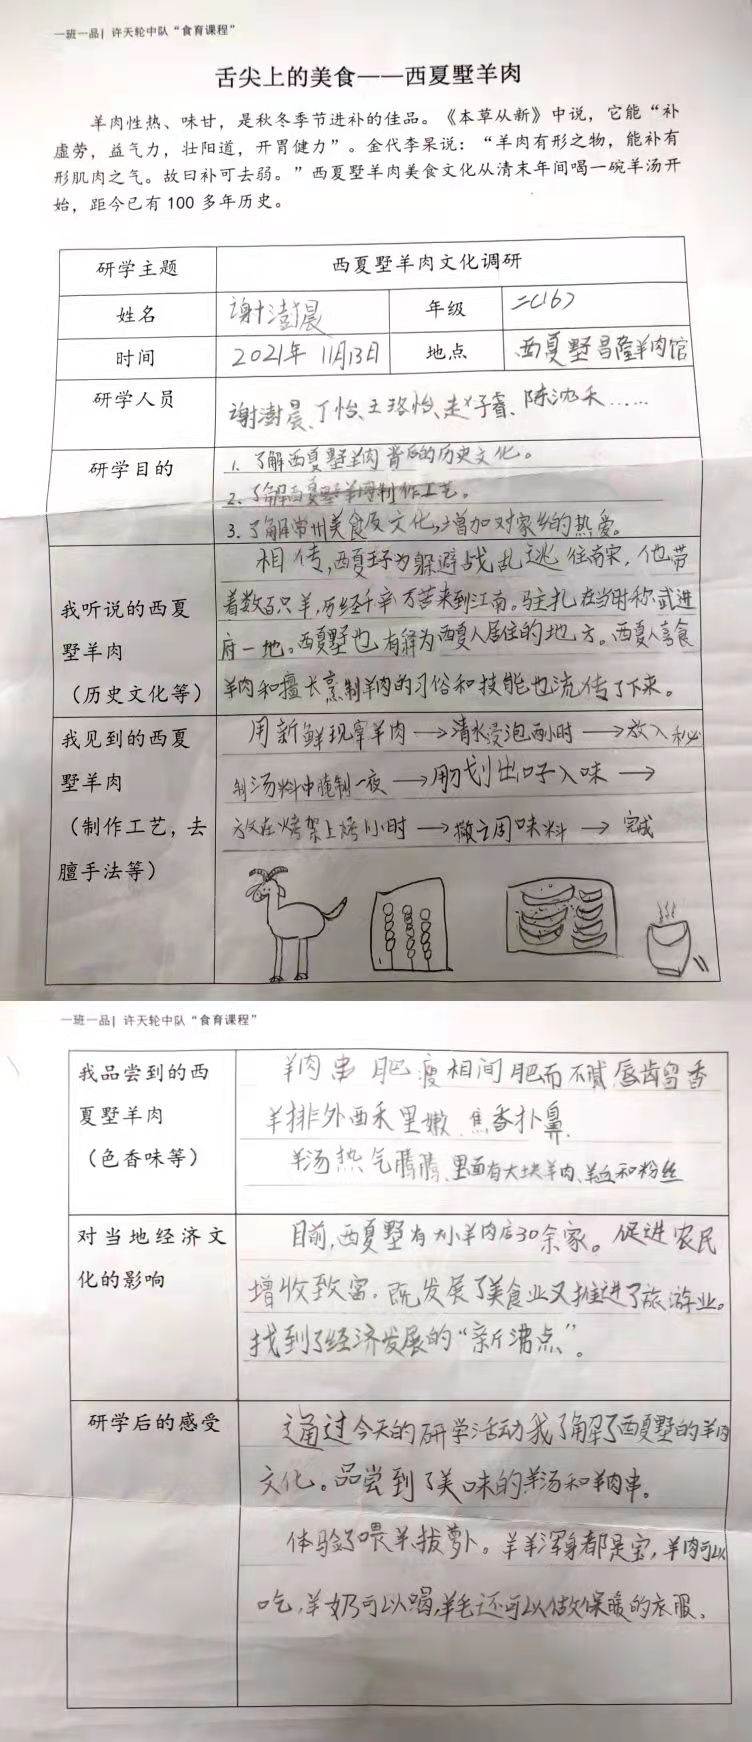 一班一品| 许天轮中队“食育课程”
舌尖上的美食——西夏墅羊肉
羊肉性热、味甘，是秋冬季节进补的佳品。《本草从新》中说，它能“补
虚劳，益气力，壮阳道，开胃健力”。金代李杲说：“羊肉有形之物，能补有
形肌肉之气。故曰补可去弱。”西夏墅羊肉美食文化从清末年间喝一碗羊汤开
始，距今已有 100 多年历史。
研学主题 西夏墅羊肉文化调研
姓名 谢澍晨 年级 二(16)
时间 2021年 11月13日 地点 西夏墅昌隆羊肉馆
研学人员 谢澍晨、丁怡、王珞怡、赵子睿、陈沈禾……
研学目的
1. 了解西夏墅羊肉背后的历史文化。
2. 了解西夏墅羊肉制作工艺。
3. 了解常州美食及文化，增加对家乡的热爱。
我听说的西夏
墅羊肉
（历史文化等）
相传，西夏王子为躲避战乱逃往南宋，他带
着数百只羊，历经千辛万苦来到江南。驻扎在当时称武进
府一地。西夏墅也有释为西夏人居住的地方。西夏人喜食
羊肉和擅长烹制羊肉的习俗和技能也流传了下来。
我见到的西夏
墅羊肉
（制作工艺，去
膻手法等）
用新鲜现宰羊肉→清水浸泡两小时→放入秘
制汤料中腌制一夜→用刀划出口子入味→
放在烤架上烤1小时→撒上调味料→完成
一班一品| 许天轮中队“食育课程”
我品尝到的西
夏墅羊肉
（色香味等）
羊肉串 肥瘦相间 肥而不腻 唇齿留香
羊排外酥里嫩、焦香扑鼻
羊汤热气腾腾、里面有大块羊肉、羊血和粉丝
对当地经济文
化的影响
目前，西夏墅有大小羊肉店30余家。促进农民
增收致富，既发展了美食业又推进了旅游业。
找到了经济发展的“新沸点”。
研学后的感受
通过今天的研学活动我了解了西夏墅的羊肉
文化。品尝到了美味的羊汤和羊肉串。
体验了喂羊、拔萝卜。羊羊浑身都是宝，羊肉可以
吃，羊奶可以喝，羊毛还可以做保暖的衣服。